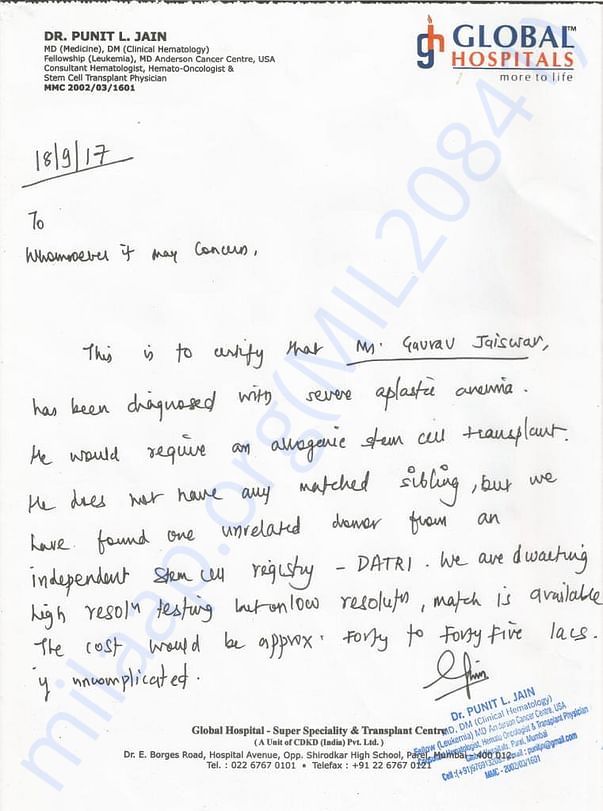 DR. PUNIT L. JAIN
MD (Medicine), DM (Clinical Hematology)
Fellowship (Leukemia), MD Anderson Cancer Centre, USA
Consultant Hematologist, Hemato-Oncologist &
Stem Cell Transplant Physician
MMC 2002/03/1601
gh GLOBAL™
HOSPITALS
more to life
18/9/17
To
Whomsoever it may concern,
This is to certify that Mr. Gaurav Jaiswar,
has been diagnosed with severe aplastic anemia.
He would require an allogenic stem cell transplant.
He does not have any matched sibling, but we
have found one unrelated donor from an
independent stem cell registry - DATRI. We are awaiting
high resoln testing but on low resolutn, match is available
The cost would be approx. forty to forty five lacs.
if uncomplicated.
Global Hospital - Super Speciality & Transplant Centre
( A Unit of CDKD (India) Pvt. Ltd. )
Dr. E. Borges Road, Hospital Avenue, Opp. Shirodkar High School, Parel, Mumbai - 400 012.
Tel. : 022 6767 0101 • Telefax : +91 22 6767 0121
Dr. PUNIT L. JAIN
MD, DM (Clinical Hematology)
Fellow (Leukemia) MD Anderson Cancer Centre, USA
Hematologist, Hemato Oncologist & Transplant Physician
Hospitals, Parel, Mumbai
MMC - 2002/03/1601
milaap.org(MIL2084